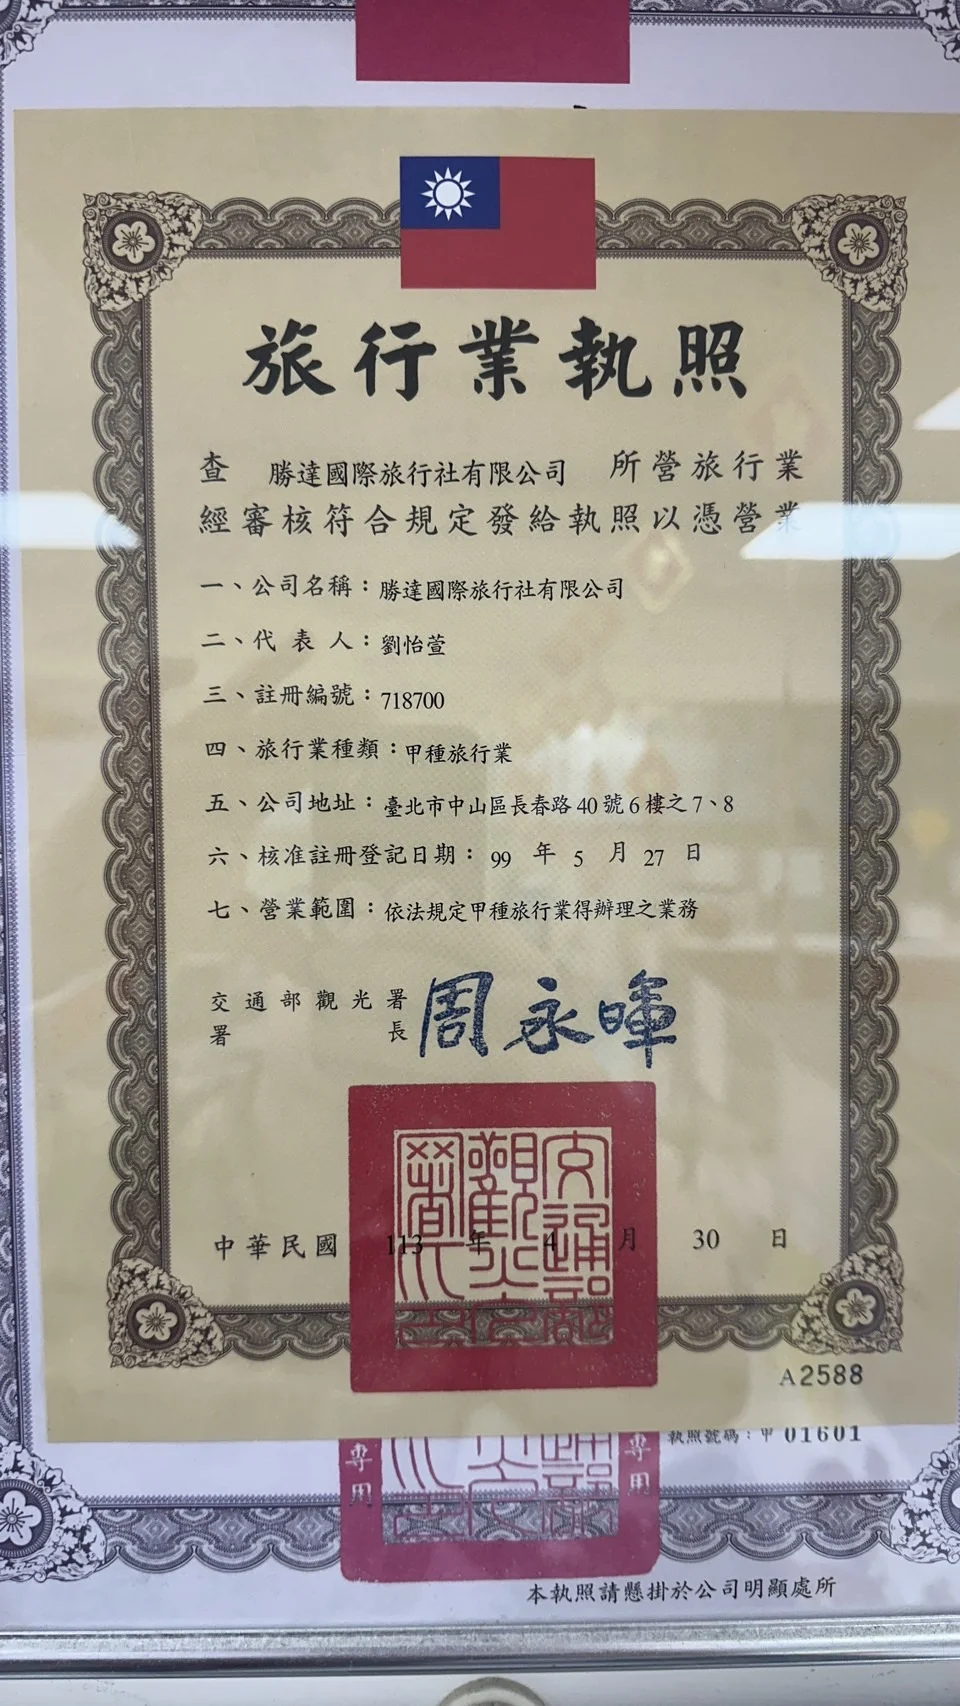 旅行業執照
查 勝達國際旅行社有限公司 所營旅行業
經審核符合規定發給執照以憑營業
一、公司名稱：勝達國際旅行社有限公司
二、代表人：劉怡萱
三、註冊編號：718700
四、旅行業種類：甲種旅行業
五、公司地址：臺北市中山區長春路40號6樓之7、8
六、核准註冊登記日期：99年5月27日
七、營業範圍：依法規定甲種旅行業得辦理之業務
交通部觀光署
署長 周永暉
交通部觀光署
中華民國113年4月30日
A2588
執照號碼：甲 01601
專用 專用
本執照請懸掛於公司明顯處所